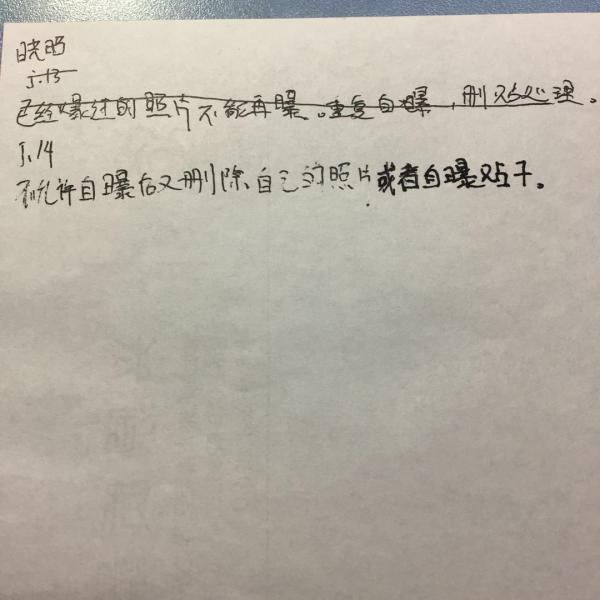 晓明
5.13
已经爆过的照片不能再曝。重复自曝,删除处理。
5.14
不允许自曝后又删除自己的照片或者自曝帖子。